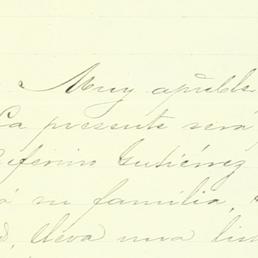 Muy apreble
La presente será
Ceferino Gutiérrez
á su familia,
lleva una